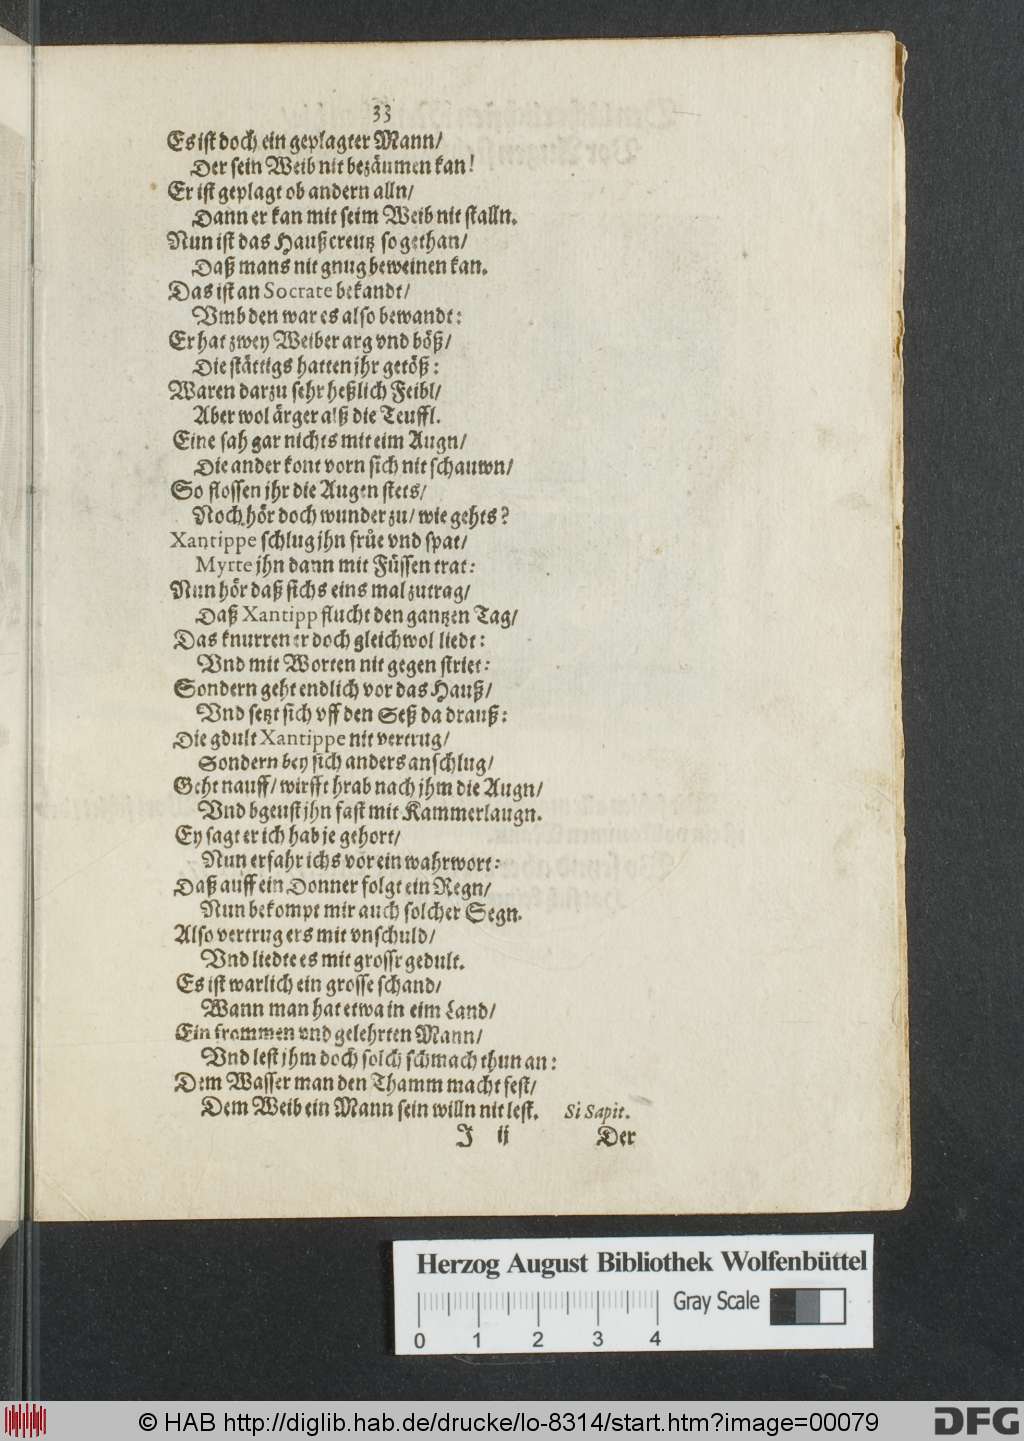 33
Es ist doch ein geplagter Mann/
Der sein Weib nit bezäumen kan!
Er ist geplagt ob andern alln/
Dann er kan mit seim Weib nit stalln.
Nun ist das Haußcreutz so gethan/
Daß mans nit gnug beweinen kan.
Das ist an Socrate bekandt/
Vmb den war es also bewandt:
Er hat zwey Weiber arg vnd böß/
Die stättigs hatten jhr getöß:
Waren darzu sehr heßlich Feibl/
Aber wol ärger alß die Teuffl.
Eine sah gar nichts mit eim Augn/
Die ander kont vorn sich nit schauwn/
So flossen jhr die Augen stets/
Noch hör doch wunder zu/ wie gehts?
Xantippe schlug jhn frůe vnd spat/
Myrte jhn dann mit Füssen trat:
Nun hör daß sichs eins mal zutrag/
Daß Xantipp flucht den gantzen Tag/
Das knurren er doch gleichwol liedt:
Vnd mit Worten nit gegen striet:
Sondern geht endlich vor das Hauß/
Vnd setzt sich vff den Seß da drauß:
Die gdult Xantippe nit vertrug/
Sondern bey sich anders anschlug/
Geht nauff/ wirfft hrab nach jhm die Augn/
Vnd bgeust jhn fast mit Kammerlaugn.
Ey sagt er ich hab je gehort/
Nun erfahr ichs vor ein wahrwort:
Daß auff ein Donner folgt ein Regn/
Nun bekompt mir auch solcher Segn.
Also vertrug ers mit vnschuld/
Vnd liedte es mit grossr gedult.
Es ist warlich ein grosse schand/
Wann man hat etwa in eim Land/
Ein frommen vnd gelehrten Mann/
Vnd lest jhm doch solch schmach thun an:
Dem Wasser man den Thamm macht fest/
Dem Weib ein Mann sein willn nit lest. Si Sapit.
J ij Der
Herzog August Bibliothek Wolfenbüttel
Gray Scale
0 1 2 3 4
© HAB http://diglib.hab.de/drucke/lo-8314/start.htm?image=00079
DFG